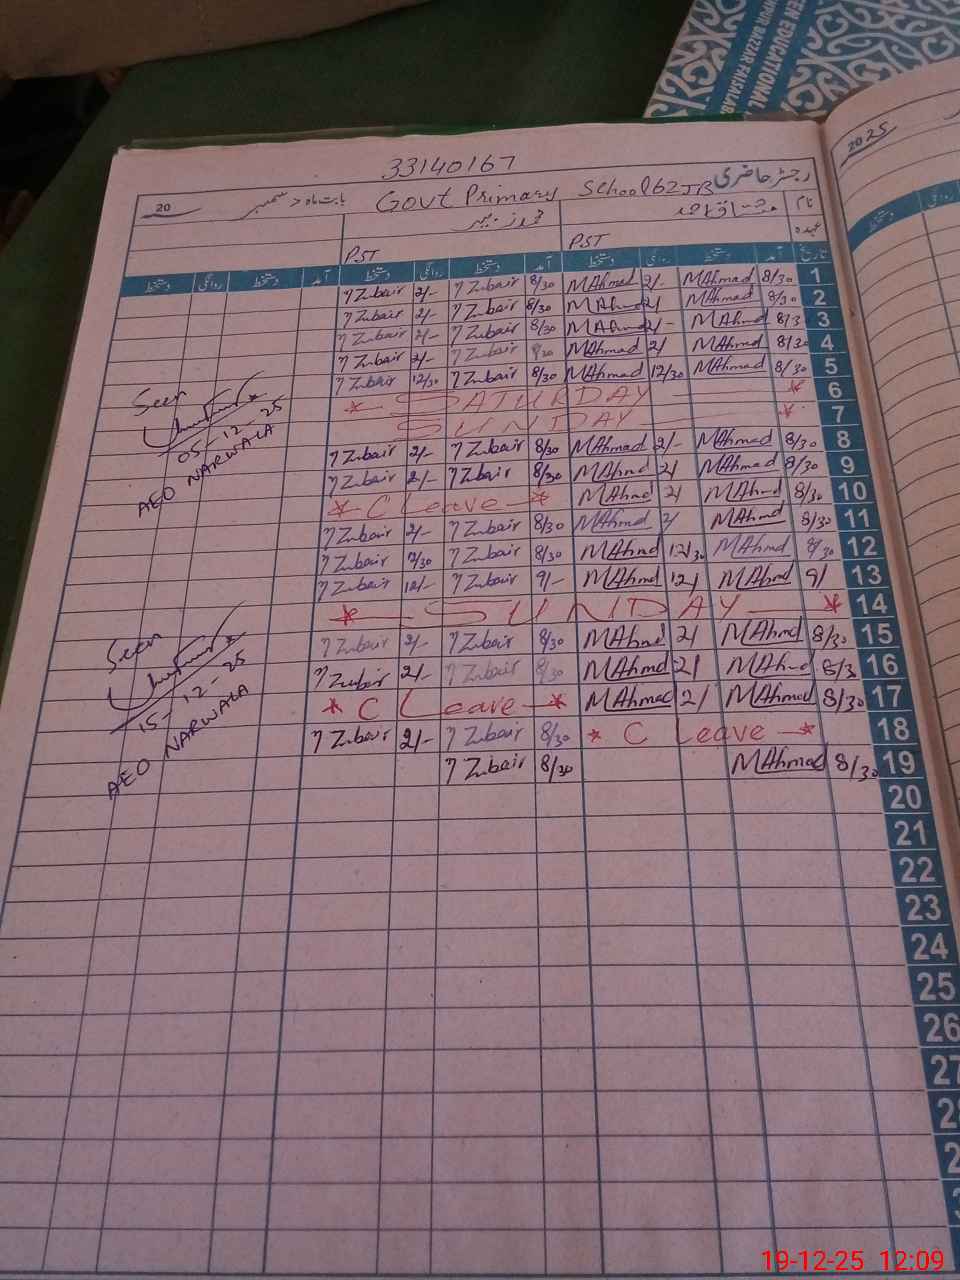 EEN EDUCATIONAL
NPUR BAZZAR FAISALAB
2025
33140167
رجسٹر حاضری Govt Primary School 62 JB بابت ماہ دسمبر 20
نام مشتاق احمد
عہدہ PST PST
تاریخ آمد دستخط روانگی دستخط آمد دستخط روانگی دستخط آمد دستخط روانگی دستخط
1 8/30 MAhmad 2/- MAhmad 8/30 M Zubair 2/- M Zubair
2 8/30 MAhmad 2/ MAhmd 8/30 M Zubair 2/- M Zubair
3 8/3 MAhmd 2/- MAhmd 8/30 M Zubair 2/- M Zubair
4 8/30 MAhmad 2/ MAhmad 8/30 M Zubair 2/- M Zubair
5 8/30 MAhmad 12/30 MAhmad 8/30 M Zubair 12/30 M Zubair
6 * SATURDAY *
7 SUNDAY *
8 8/30 MAhmad 2/- MAhmad 8/30 M Zubair 2/- M Zubair
9 8/30 MAhmad 2/ MAhmd 8/30 M Zubair 2/- M Zubair
10 8/30 MAhmd 2/ MAhmd * C Leave *
11 8/30 MAhmd 2/ MAhmd 8/30 M Zubair 2/- M Zubair
12 8/30 MAhmd 12/30 MAhmd 8/30 M Zubair M Zubair
13 9/ MAhmd 12/ MAhmd 9/- M Zubair 12/- M Zubair
14 * SUNDAY *
15 8/30 MAhmd 2/ MAhmd 8/30 M Zubair 2/- M Zubair
16 8/3 MAhmd 2/ MAhmd 8/30 M Zubair 2/- M Zubair
17 8/30 MAhmad 2/ MAhmad * C Leave *
18 * C Leave * 8/30 M Zubair 2/- M Zubair
19 8/30 MAhmad 8/30 M Zubair
20
21
22
23
24
25
26
27
Seen
05-12-25
AEO NARWALA
Seen
15-12-25
AEO NARWALA
19-12-25 12:09